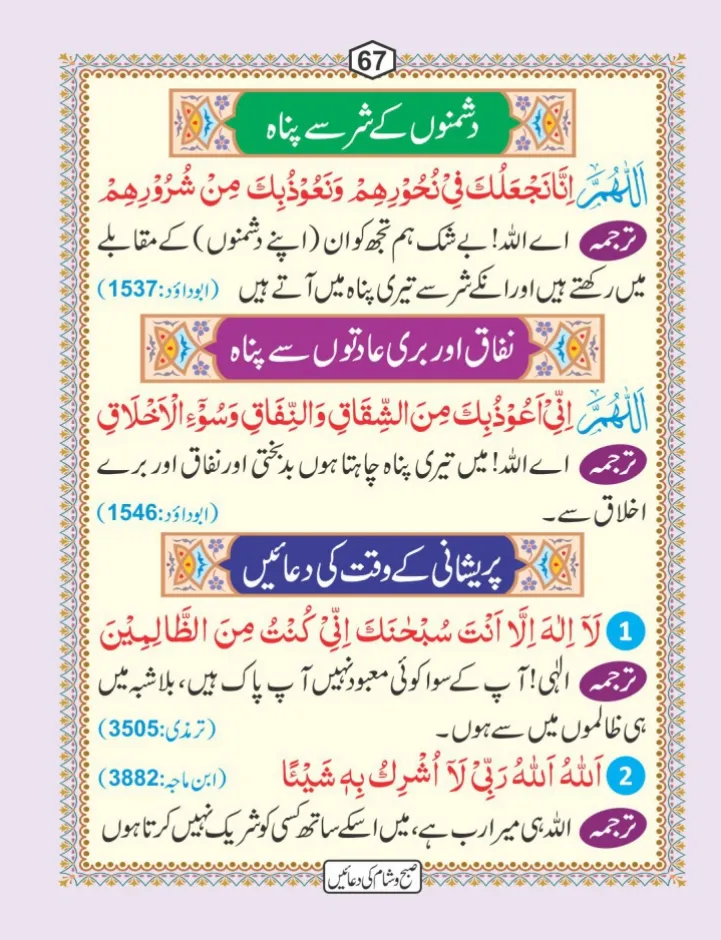 67
دشمنوں کے شر سے پناہ
اَللّٰهُمَّ اِنَّا نَجْعَلُكَ فِيْ نُحُوْرِهِمْ وَنَعُوْذُبِكَ مِنْ شُرُوْرِهِمْ
ترجمہ اے اللہ! بے شک ہم تجھ کو ان (اپنے دشمنوں) کے مقابلے
میں رکھتے ہیں اور انکے شر سے تیری پناہ میں آتے ہیں (ابوداؤد:1537)
نفاق اور بری عادتوں سے پناہ
اَللّٰهُمَّ اِنِّيْ اَعُوْذُبِكَ مِنَ الشِّقَاقِ وَالنِّفَاقِ وَسُوْٓءِ الْاَخْلَاقِ
ترجمہ اے اللہ! میں تیری پناہ چاہتا ہوں بدبختی اور نفاق اور برے
اخلاق سے۔ (ابوداؤد:1546)
پریشانی کے وقت کی دعائیں
1 لَآ اِلٰهَ اِلَّا اَنْتَ سُبْحٰنَكَ اِنِّيْ كُنْتُ مِنَ الظَّالِمِيْنَ
ترجمہ الٰہی! آپ کے سوا کوئی معبود نہیں آپ پاک ہیں، بلاشبہ میں
ہی ظالموں میں سے ہوں۔ (ترمذی:3505)
2 اَللّٰهُ اَللّٰهُ رَبِّيْ لَآ اُشْرِكُ بِهٖ شَيْئًا (ابن ماجہ:3882)
ترجمہ اللہ ہی میرا رب ہے، میں اسکے ساتھ کسی کو شریک نہیں کرتا ہوں
صبح و شام کی دعائیں